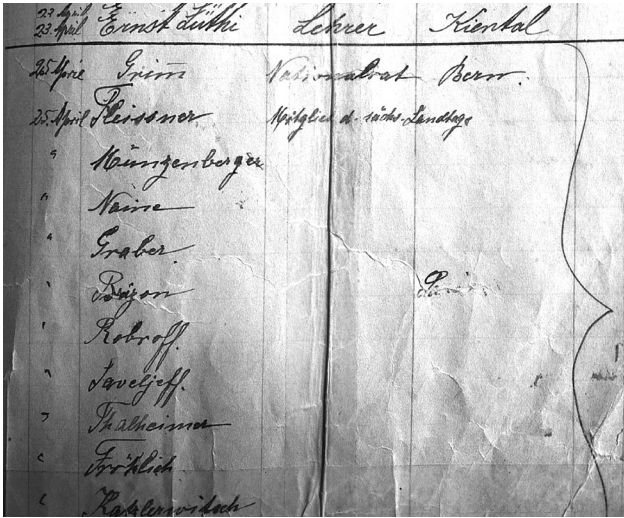 22. April
23. April Ernst Lüthi Lehrer Kiental
25 April Grim̄ Nationalrat Bern.
25. April Fleissner Mitglied d. sächs. Landtags
" Münzenberger
" Naine
" Graber
" 
" Bobroff.
" Saveljeff.
" Thalheimer
" Fröhlich
" Katzlerowitsch